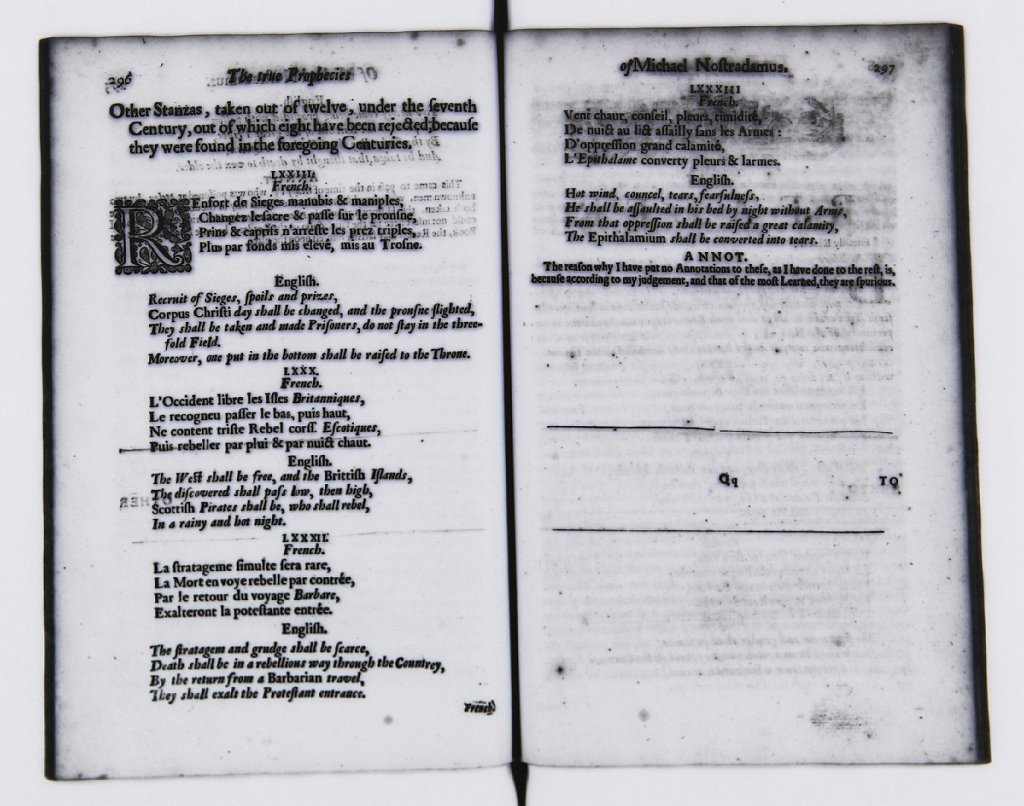 296 The true Prophecies
Other Stanzas, taken out of twelve, under the ſeventh
Century, out of which eight have been rejected, becauſe
they were found in the foregoing Centuries.
LXXIII.
French.
REnfort de Sieges manubis & maniples,
Changez le ſacre & paſſe ſur le pronſne,
Prins & captifs n'arreſte les prez triples,
Plus par fonds mis elevé, mis au Troſne.
Engliſh.
Recruit of Sieges, ſpoils and prizes,
Corpus Chriſti day ſhall be changed, and the pronſne ſlighted,
They ſhall be taken and made Priſoners, do not ſtay in the three-
fold Field.
Moreover, one put in the bottom ſhall be raiſed to the Throne.
LXXX.
French.
L'Occident libre les Iſles Britanniques,
Le recogneu paſſer le bas, puis haut,
Ne content triſte Rebel corſſ. Eſcotiques,
Puis rebeller par plui & par nuict chaut.
Engliſh.
The Weſt ſhall be free, and the Brittiſh Iſlands,
The diſcovered ſhall paſs low, then high,
Scottiſh Pirates ſhall be, who ſhall rebel,
In a rainy and hot night.
LXXXII.
French.
La ſtratageme ſimulte ſera rare,
La Mort en voye rebelle par contrée,
Par le retour du voyage Barbare,
Exalteront la poteſtante entrée.
Engliſh.
The ſtratagem and grudge ſhall be ſcarce,
Death ſhall be in a rebellious way through the Countrey,
By the return from a Barbarian travel,
They ſhall exalt the Proteſtant entrance.
French
of Michael Noſtradamus. 297
LXXXIII
French.
Vent chaut, conſeil, pleurs, timidité,
De nuict au lict aſſailly ſans les Armes:
D'oppreſſion grand calamité,
L'Epithalame converty pleurs & larmes.
Engliſh.
Hot wind, councel, tears, fearfulneſs,
He ſhall be aſſaulted in his bed by night without Arms,
From that oppreſſion ſhall be raiſed a great calamity,
The Epithalamium ſhall be converted into tears.
ANNOT.
The reaſon why I have put no Annotations to theſe, as I have done to the reſt, is,
becauſe according to my judgement, and that of the moſt Learned, they are ſpurious.
Qq TO